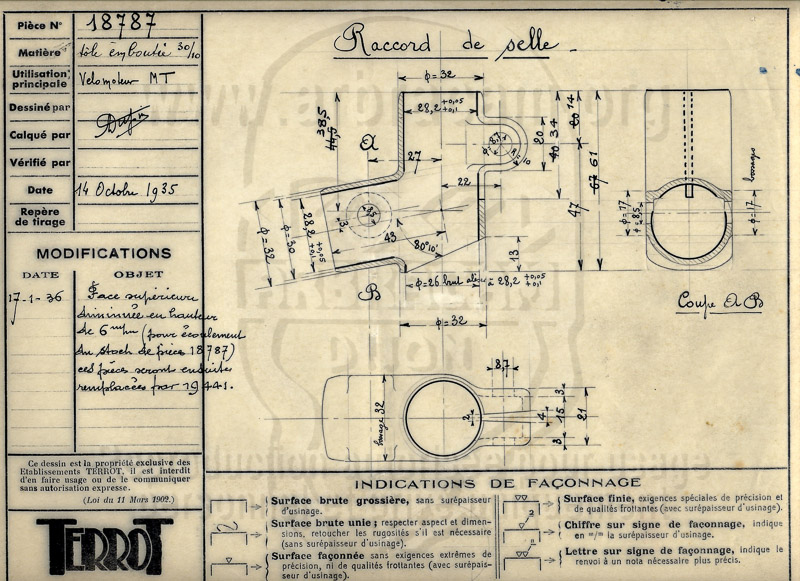 Pièce N° 18787
Matière tôle emboutie 30/10
Utilisation principale Velomoteur MT
Dessiné par
Calqué par
Vérifié par
Date 14 Octobre 1935
Repère de tirage
MODIFICATIONS
DATE OBJET
17-1-36 Face supérieure
diminuée en hauteur
de 6 m/m (pour écoulement
du stock de pièces 18787)
ces pièces seront ensuite
remplacées par 19441.
Ce dessin est la propriété exclusive des
Etablissements TERROT, il est interdit
d'en faire usage ou de le communiquer
sans autorisation expresse.
(Loi du 11 Mars 1902.)
TERROT
Raccord de selle
φ=32
28,2 +0,05 +0,1
38,5
44,5
A
27
22
8,7
R=10
20
40 34
20 14
67 61
47
φ=32
φ=30
28,2 +0,05 +0,1
3
8,5
43
80°10'
13
B
φ=26 brut alésé à 28,2 +0,05 +0,1
φ=32
φ=17
8,5
φ=17
Coupe A B
8,7
32
2
3
4
15
21
3
INDICATIONS DE FAÇONNAGE
Surface brute grossière, sans surépaisseur
d'usinage.
Surface brute unie; respecter aspect et dimen-
sions, retoucher les rugosités s'il est nécessaire
(sans surépaisseur d'usinage).
Surface façonnée sans exigences extrêmes de
précision, ni de qualités frottantes (avec surépais-
seur d'usinage).
Surface finie, exigences spéciales de précision et
de qualités frottantes (avec surépaisseur d'usinage).
2
Chiffre sur signe de faconnage, indique
en m/m la surépaisseur d'usinage.
n
Lettre sur signe de façonnage, indique le
renvoi à un nota nécessaire plus précis.